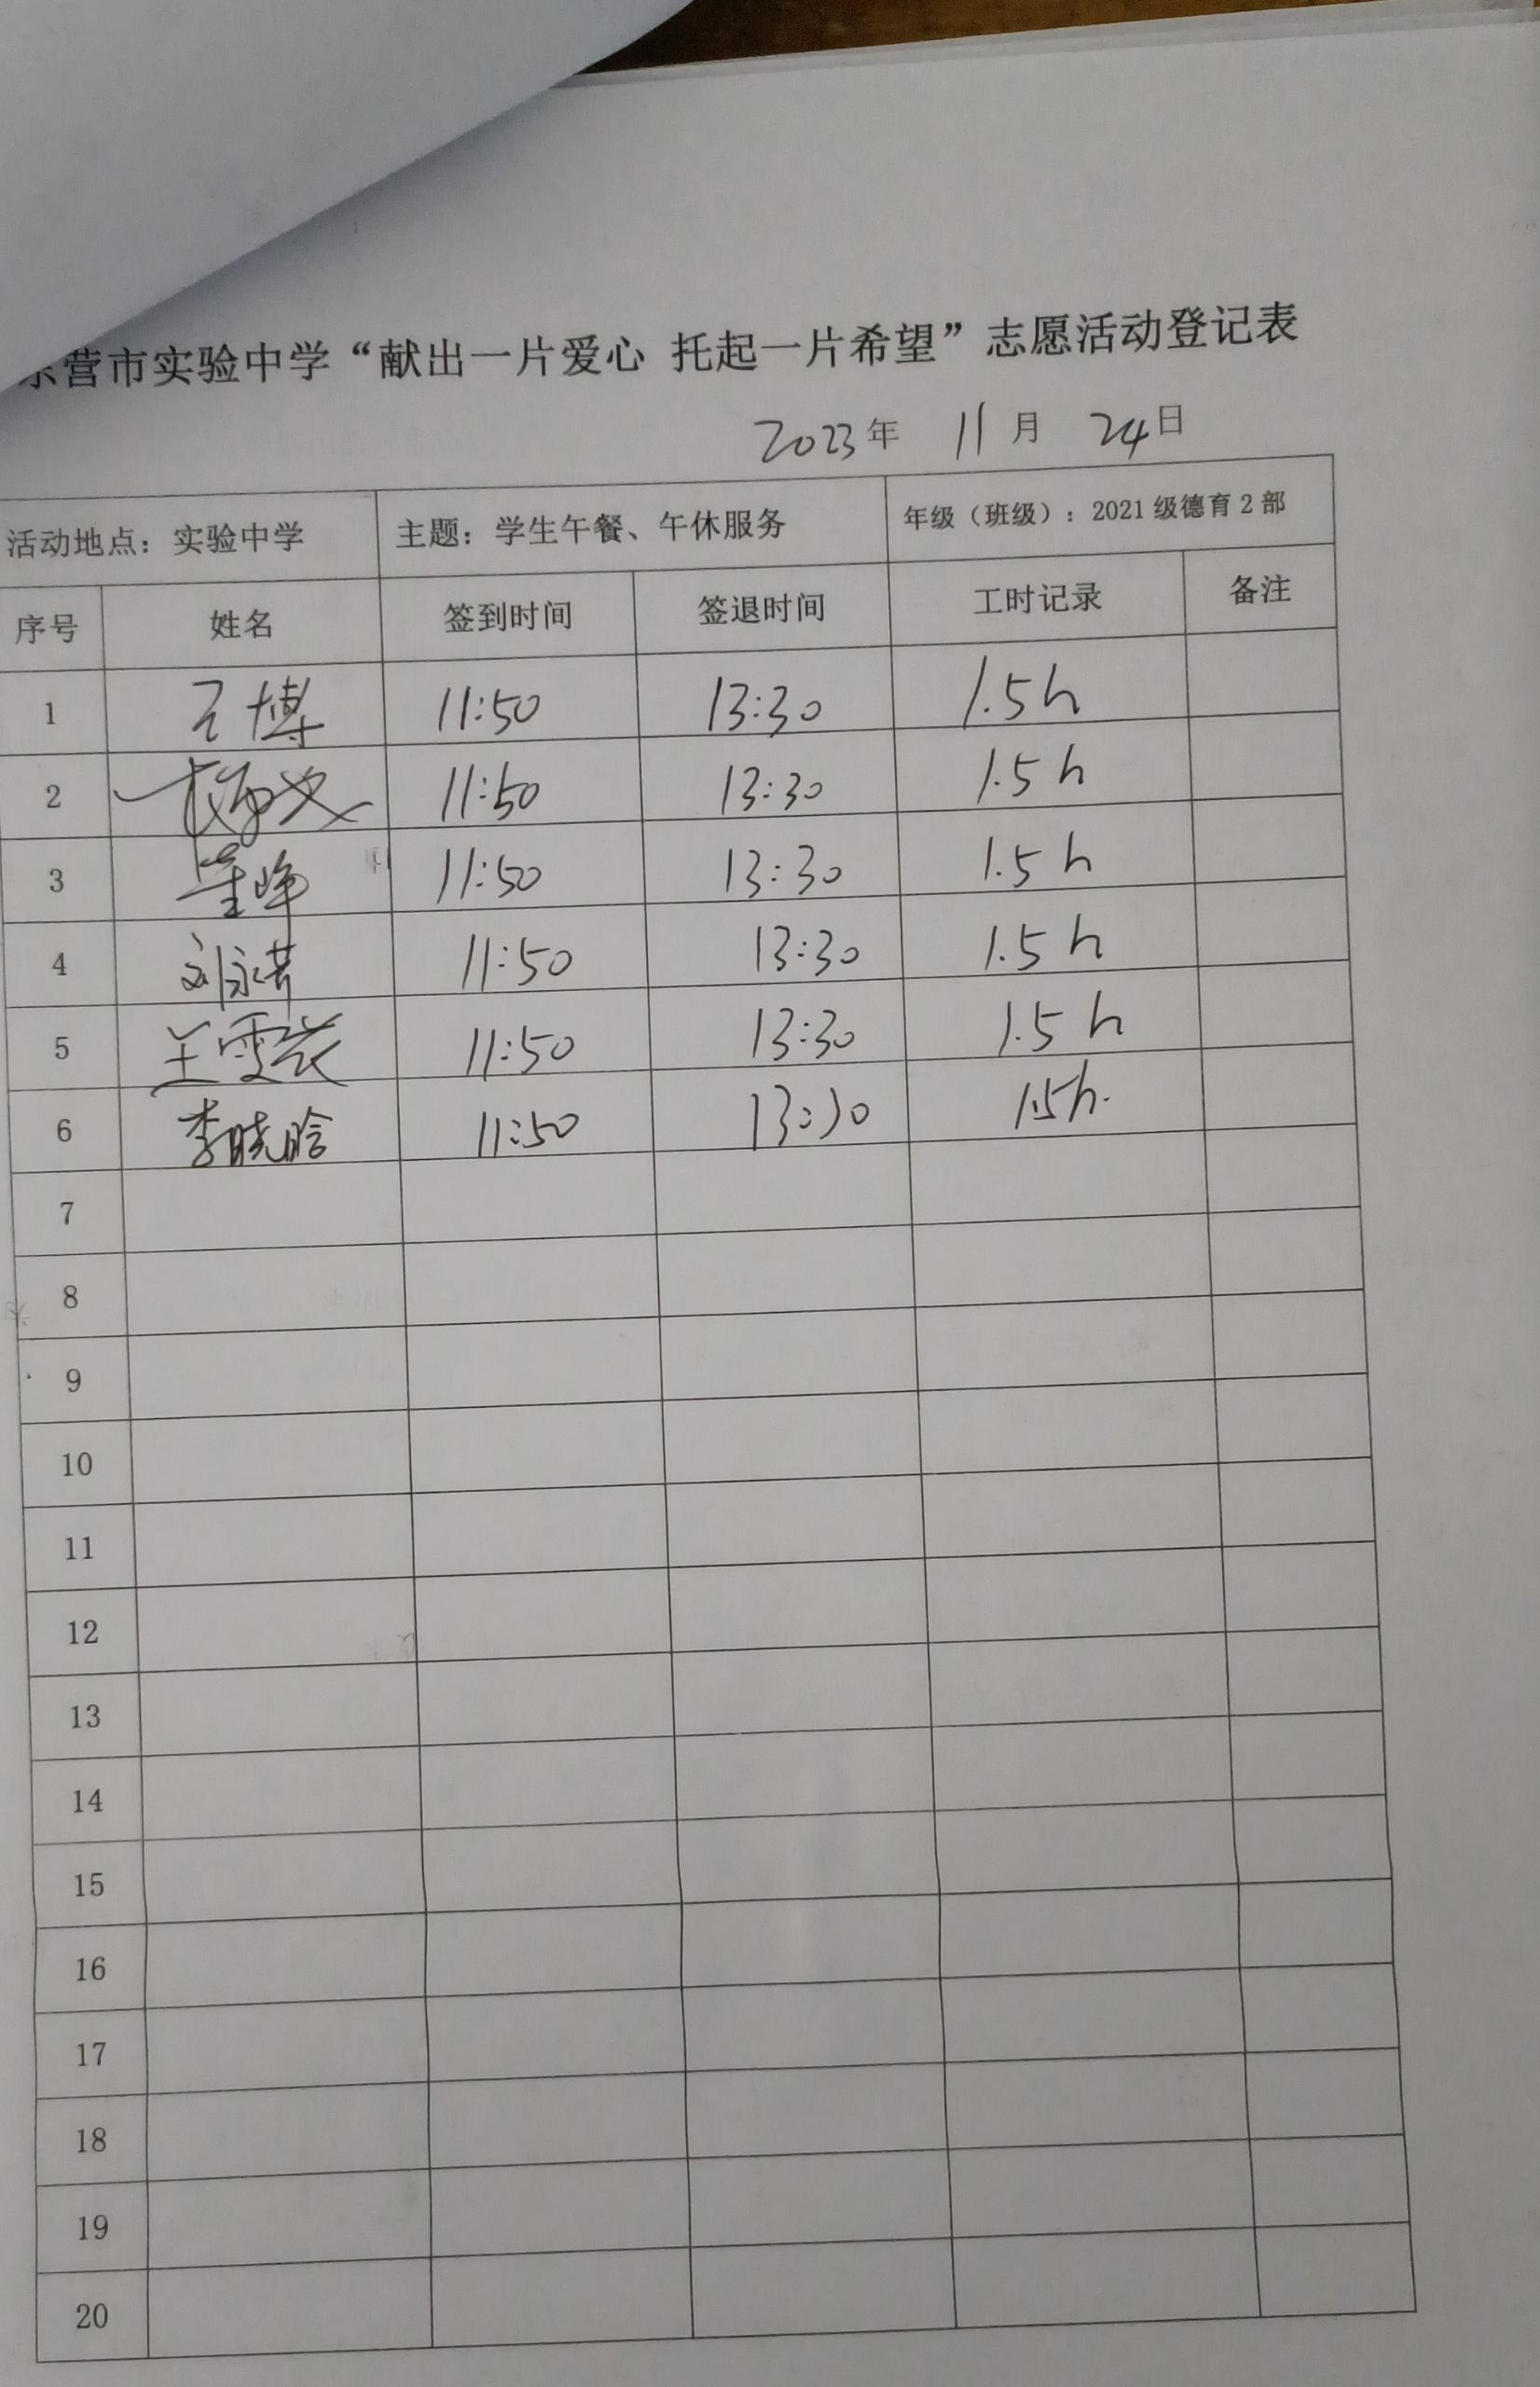 营市实验中学“献出一片爱心 托起一片希望”志愿活动登记表
2023年 11月 24日
活动地点：实验中学 主题：学生午餐、午休服务 年级（班级）：2021级德育2部
序号 姓名 签到时间 签退时间 工时记录 备注
1 王博 11:50 13:30 1.5h
2 11:50 13:30 1.5h
3 董峥 11:50 13:30 1.5h
4 刘永 11:50 13:30 1.5h
5 王雯 11:50 13:30 1.5h
6 李晓晗 11:50 13:30 1.5h.
7
8
9
10
11
12
13
14
15
16
17
18
19
20